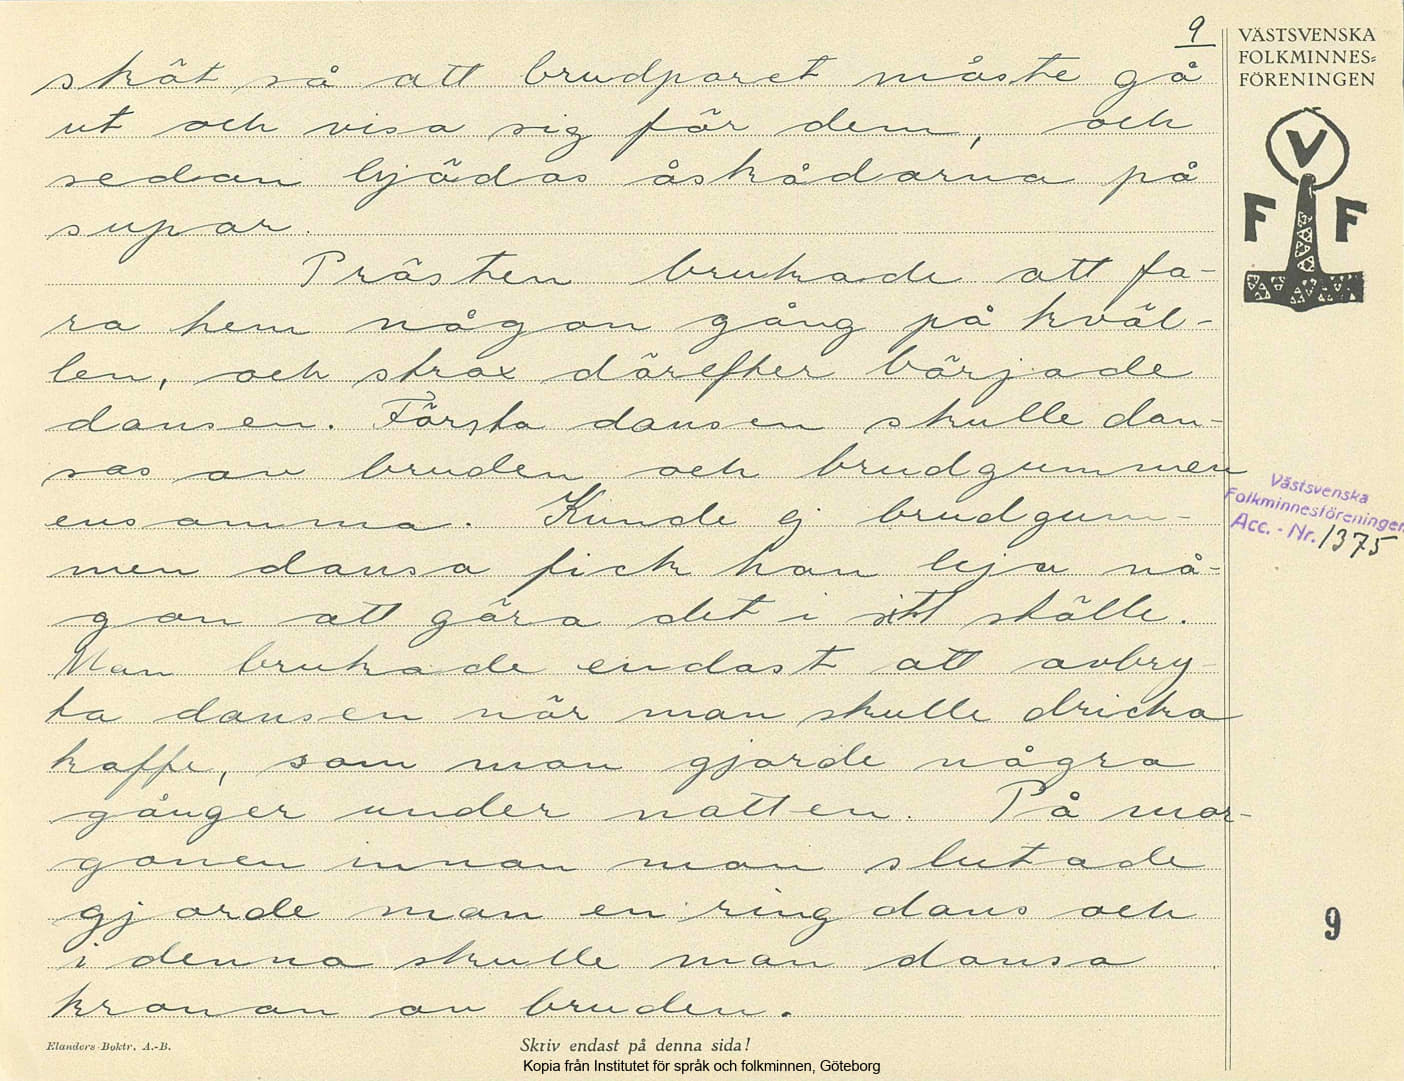 9
VÄSTSVENSKA
FOLKMINNES=
FÖRENINGEN
V
F F
sköt så att brudparet måste gå
ut och visa sig för dem, och
sedan bjödos åskådarna på
supar.
Prästen brukade att fa-
ra hem någon gång på kväl-
len, och strax därefter började
dansen. Första dansen skulle dan-
sas av bruden och brudgummen
ensamma. Kunde ej brudgum-
men dansa fick han leja nå-
gon att göra det i sitt ställe.
Man brukade endast att avbry-
ta dansen när man skulle dricka
kaffe, som man gjorde några
gånger under natten. På mor-
gonen innan man slutade
gjorde man en ringdans och
i denna skulle man dansa
kronan av bruden.
Västsvenska
Folkminnesföreningen
Acc. - Nr. 1375
9
Elanders Boktr. A.-B.
Skriv endast på denna sida!
Kopia från Institutet för språk och folkminnen, Göteborg